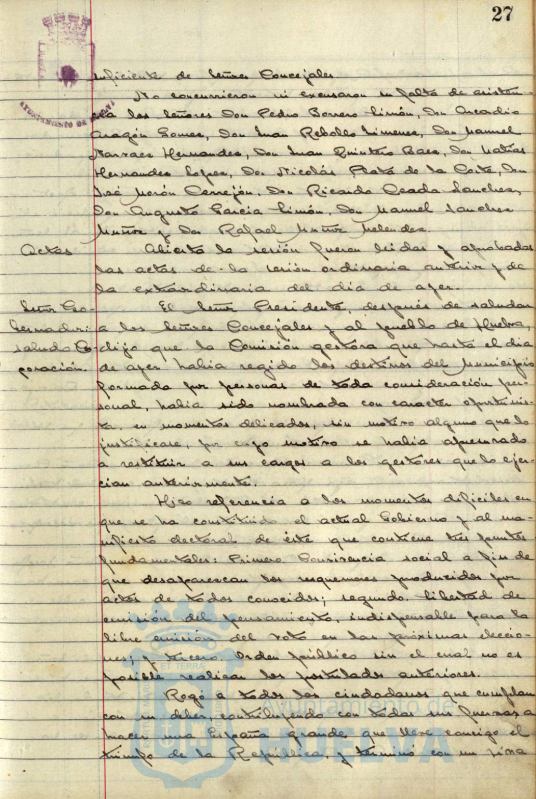 27
AYUNTAMIENTO DE HUELVA
suficiente de Señores Concejales.
No concurrieron ni excusaron su falta de asisten-
cia los Señores Don Pedro Borrero Limón, Don Arcadio
Aragón Gomez, Don Juan Rebollo Jimenez, Don Manuel
Narvaez Hernandez, Don Juan Quintero Baez, Don Matias
Hernandez Lopez, Don Nicolás Plata de la Corte, Don
José Morón Cerrejón, Don Ricardo Ocada Sanchez,
Don Augusto Garcia Limón, Don Manuel Sanchez
Muñoz y Don Rafael Muñoz Melendez.
Actas
Abierta la sesión fueron leidas y aprobadas
las actas de la sesión ordinaria anterior y de
la extraordinaria del dia de ayer.
Señor Go-
bernador:
saludo Cor-
poración.
El Señor Presidente, después de saludar
a los Señores Concejales y al pueblo de Huelva,
dijo que la Comisión gestora que hasta el dia
de ayer habia regido los destinos del Municipio
formada por personas de toda consideración per-
sonal, habia sido nombrada con caracter oportunis-
ta, en momentos delicados, sin motivo alguno que lo
justificase, por cuyo motivo se habia apresurado
a restituir a sus cargos a los gestores que lo ejer-
cian anteriormente.
Hizo referencia a los momentos dificiles en
que se ha constituido el actual Gobierno y al ma-
nifiesto electoral de éste que contiene tres puntos
fundamentales: Primero Convivencia social a fin de
que desaparezcan los resquemores producidos por
actos de todos conocidos; segundo, libertad de
emisión del pensamiento, indispensable para la
libre emisión del voto en las próximas eleccio-
nes; y tercero, Orden público sin el cual no es
posible realizar los postulados anteriores.
Rogó a todos los ciudadanos que cumplan
con su deber, contribuyendo con todas sus fuerzas a
hacer una España grande que lleve consigo el
triunfo de la República, y terminó con un viva
Ayuntamiento de
HUELVA